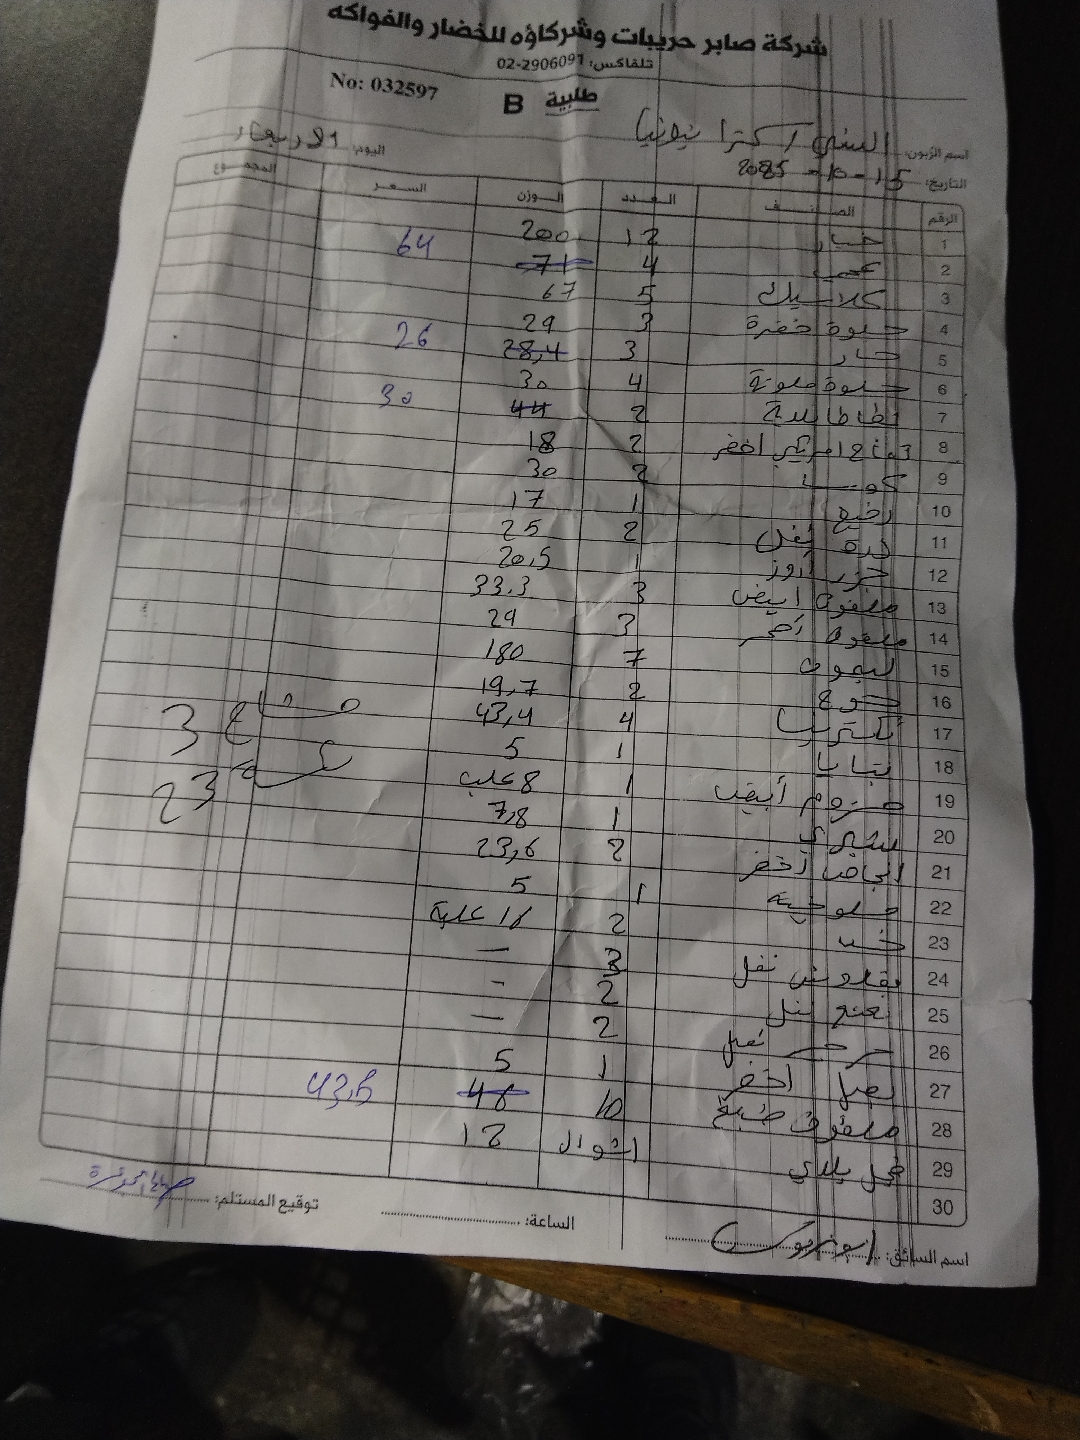 شركة صابر حريبات وشركاؤه للخضار والفواكه
تلفاكس: 02-2906091
No: 032597
طلبية B
اسم الزبون: السني / اكسترا اليوم: الاربعاء
التاريخ: 15-10-2025
الرقم الصنف العدد الوزن السعر المجموع
1 خيار 12 200
2 4 71 64
3 كلاسيك 5 67
4 حلوة خضرة 3 29
5 حار 3 28,4 26
6 حلوة ملونة 4 30
7 بطاطا بلدية 2 44 30
8 تفاح امريكي اخضر 2 18
9 2 30
10 1 17
11 ذرة 2 25
12 جزر 1 20,5
13 ملفوف ابيض 3 33.3
14 ملفوف احمر 3 29
15 ليمون 7 180
16 2 19,7
17 نكتارينا 4 43,4
18 1 5
19 أبيض 1 8 علب
20 1 7,8
21 انجاص أخضر 2 23,6
22 ملوخية 1 5
23 خس 2 18 علبة
24 بقدونس 3 —
25 نعنع 2 -
26 2 —
27 بصل اخضر 1 5
28 ملفوف 10 48 43,5
29 فجل بلدي اشوال 12
30
مشاح 3
23
اسم السائق:
الساعة:
توقيع المستلم: